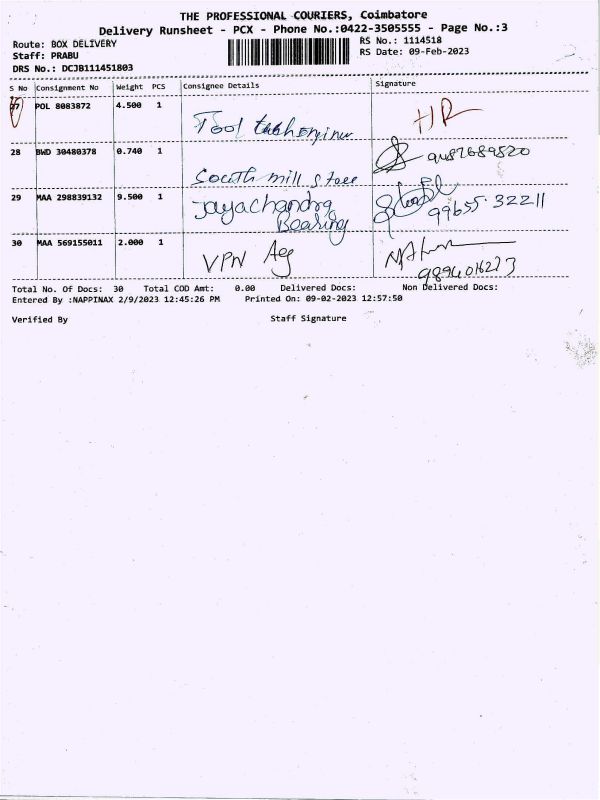 THE PROFESSIONAL COURIERS, Coimbatore
Delivery Runsheet - PCX - Phone No.:0422-3505555 - Page No.:3
Route: BOX DELIVERY
Staff: PRABU
DRS No.: DCJB111451803
RS No.: 1114518
RS Date: 09-Feb-2023
S No Consignment No Weight PCS Consignee Details Signature
27 POL 8083872 4.500 1
Tool
28 BWD 30480378 0.740 1 9487689820
South mill store
29 MAA 298839132 9.500 1 Jayachandra 99655.32211
Bearing
30 MAA 569155011 2.000 1 VPN Ag
9894016273
Total No. Of Docs: 30 Total COD Amt: 0.00 Delivered Docs: Non Delivered Docs:
Entered By :NAPPINAX 2/9/2023 12:45:26 PM Printed On: 09-02-2023 12:57:50
Verified By Staff Signature